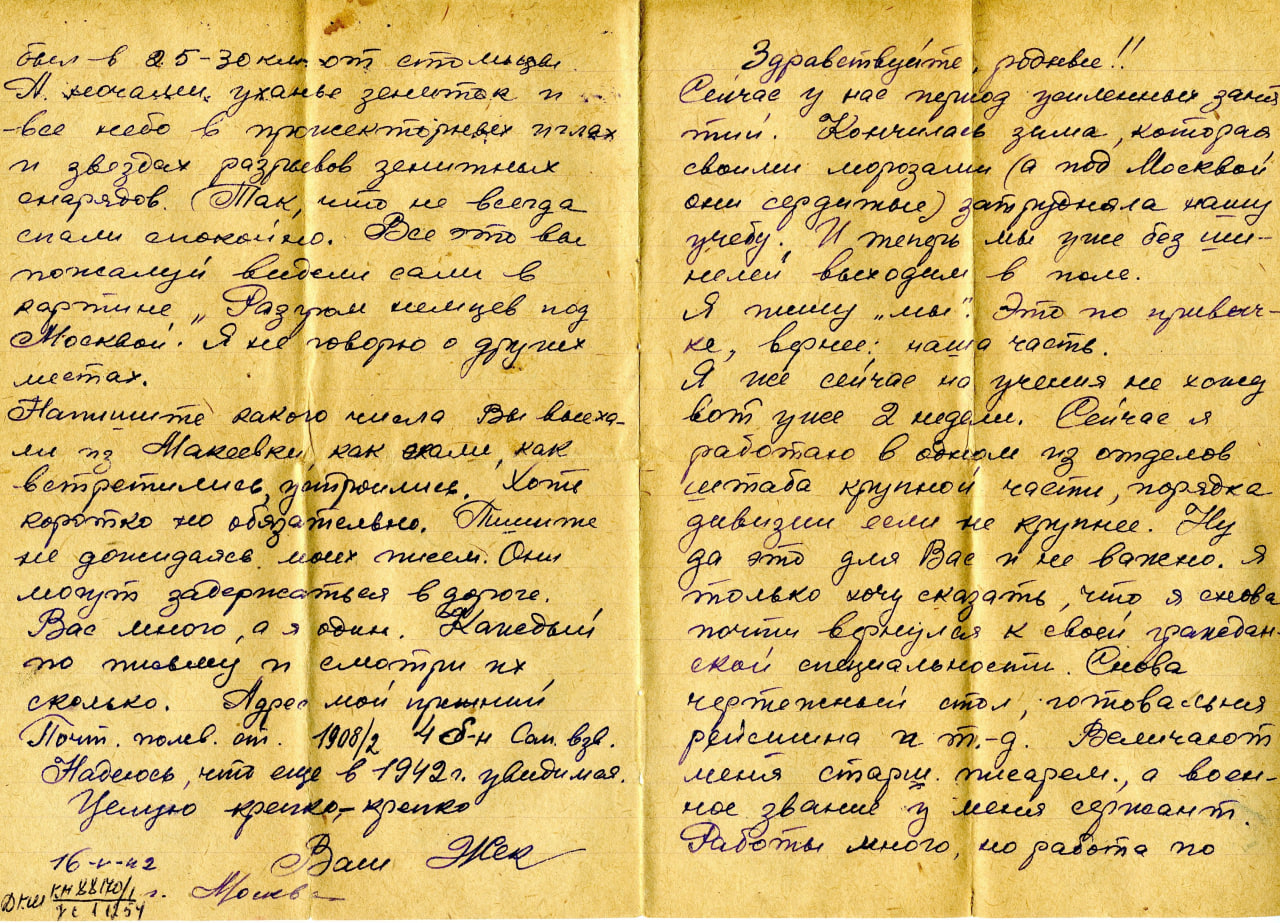 Здравствуйте, родные!!
Сейчас у нас период усиленных заня
тий. Кончилась зима, которая
своими морозами (а под Москвой
они сердитые) затрудняла нашу
учебу. И теперь мы уже без ши-
нелей выходим в поле.
Я пишу „мы". Это по привыч-
ке, вернее: наша часть.
Я же сейчас на учения не хожу
вот уже 2 недели. Сейчас я
работаю в одном из отделов
штаба крупной части, порядка
дивизии если не крупнее. Ну
да это для Вас и не важно. Я
только хочу сказать, что я снова
почти вернулся к своей граждан-
ской специальности. Снова
чертежный стол, готовальня
рейсшина и т.-д. Величают
меня старш. писарем, а воен-
ное звание у меня сержант.
Работы много, но работа по
был в 25-30 км от столицы.
А ночами уханье зениток и
-все небо в прожекторных иглах
и звездах разрывов зенитных
снарядов. (Так, что не всегда
спали спокойно. Все это вы
пожалуй видели сами в
картине „Разгром немцев под
Москвой". Я не говорю о других
местах.
Напишите какого числа Вы выеха-
ли из Макеевки, как ехали, как
встретились, устроились. Хоть
коротко но обязательно. Пишите
не дожидаясь моих писем. Они
могут задержаться в дороге.
Вас много, а я один. Каждый
по письму и смотри их
сколько. Адрес мой
Почт. полев. ст. 1908/2 4 б-н Сап. взв.
Надеюсь, что еще в 1942 г. увидимся.
Целую крепко-крепко
Ваш Жек
16-V-42
г. Москва
КП 88170/1